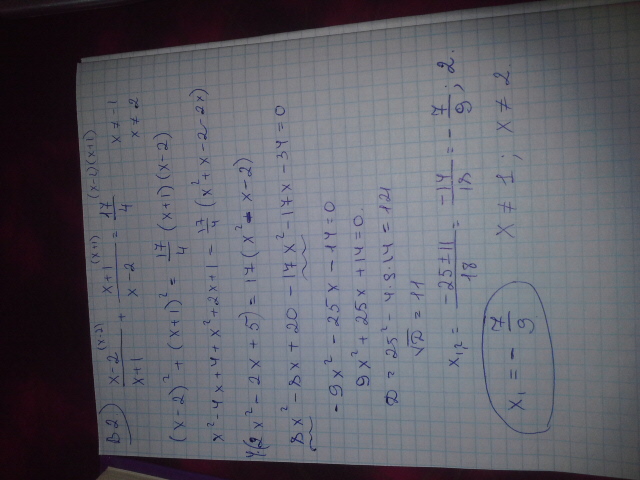 B2) x-2/x+1 (x-2) + x+1/x-2 (x+1) = 17/4 (x-2)(x+1) x≠-1 x≠2
(x-2)² + (x+1)² = 17/4 (x+1)(x-2)
x²-4x+4+x²+2x+1 = 17/4 (x²+x-2-2x)
4(2x²-2x+5) = 17(x²-x-2)
8x²-8x+20-17x²-17x-34=0
-9x²-25x-14=0
9x²+25x+14=0
D=25²-4·9·14=121
√D=11
x₁,₂ = -25±11/18 = -14/18 = -7/9; 2.
x₁ = -7/9 x≠1; x≠2